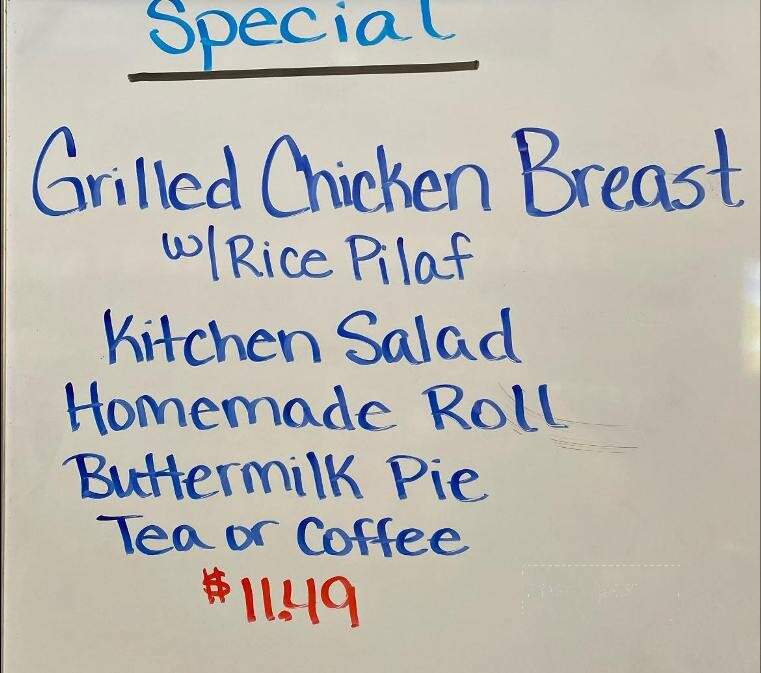 Special
Grilled Chicken Breast
w/Rice Pilaf
Kitchen Salad
Homemade Roll
Buttermilk Pie
Tea or Coffee
$11.49